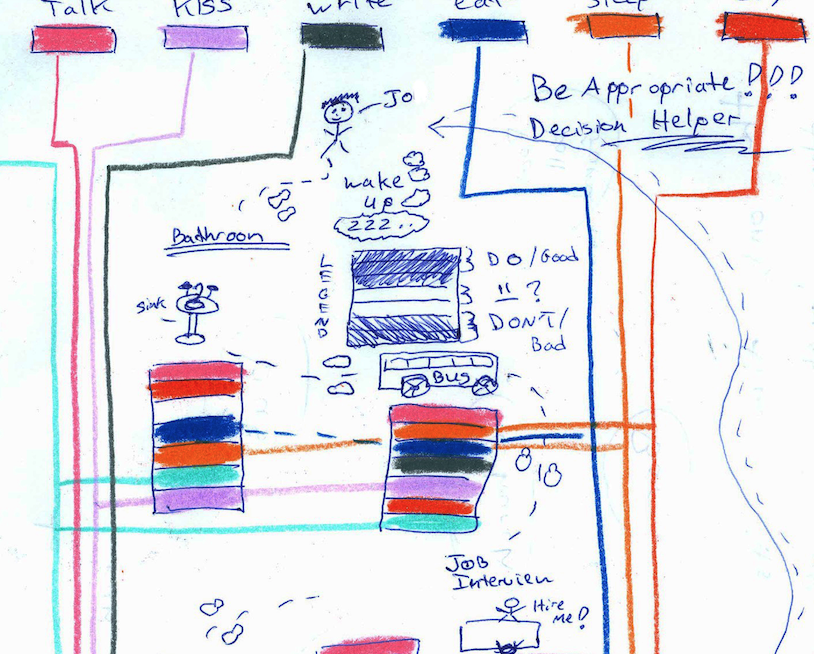 Talk Kiss write eat sleep
Be Appropriate!!!
Decision Helper
Jo
wake
up
zzz..
Bathroon
LEGEND
DO/Good
= ?
DON'T/
Bad
sink
BUS
JOB
Interview
Hire
Me!